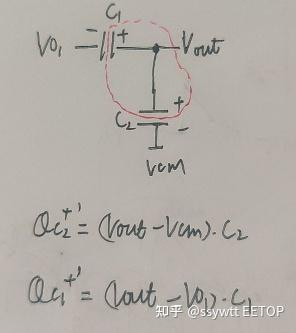 C₁
Vo₁ - + Vout
C₂ + -
Vcm
Qc₂⁺' = (Vout - Vcm)·C₂
Qc₁⁺' = (Vout - Vo₁)·C₁
知乎 @ssywtt EETOP